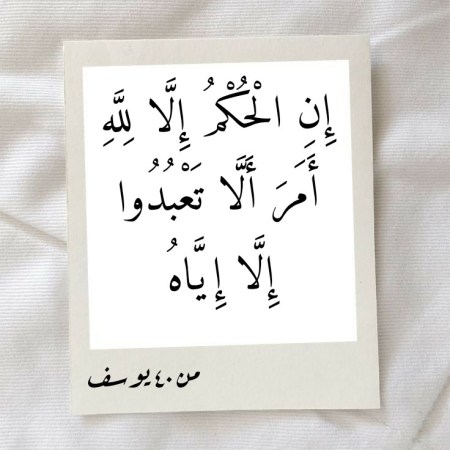 إِنِ الْحُكْمُ إِلَّا لِلَّهِ
أَمَرَ أَلَّا تَعْبُدُوا
إِلَّا إِيَّاهُ
من ٤٠ يوسف